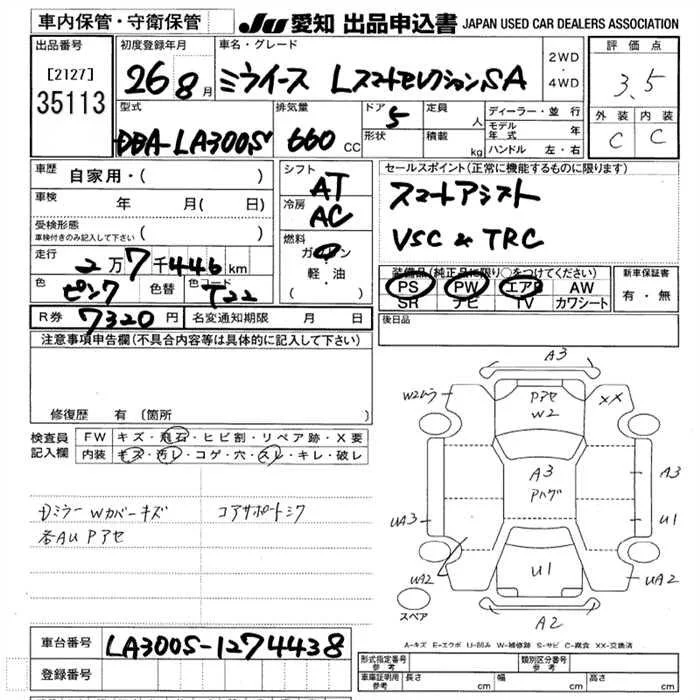 車内保管・守衛保管
JU 愛知 出品申込書 JAPAN USED CAR DEALERS ASSOCIATION
出品番号
[2127]
35113
初度登録年月
26 8月
車名・グレード
ミライース LスマートセレクションSA
2WD
・
4WD
評価点
3.5
外装 内装
C C
型式
DBA-LA300S
排気量
660 CC
ドア 5
形状
定員 人
積載 kg
ディーラー・並行
モデル年式 年
ハンドル 左・右
車歴 自家用・( )
車検 年 月( 日)
受検形態
車検付きのみ記入して下さい ( )
走行 2万7千446km
色 ピンク 色替 色コード T22
R券 7320円 名変通知期限 月 日
シフト AT
冷房 AC
燃料
ガソリン
軽・油
( )
セールスポイント(正常に機能するものに限ります)
スマートアシスト
VSC & TRC
装備品(純正品に限り○をつけてください)
PS PW エアB AW
SR ナビ TV カワシート
新車保証書
有・無
後日品
注意事項申告欄(不具合内容等は具体的に記入して下さい)
修復歴 有(箇所 )
検査員
記入欄
FW キズ・飛石・ヒビ割・リペア跡・X要
内装 キズ・汚レ・コゲ・穴・スレ・キレ・破レ
Dミラー Wカバーキズ
コアサポートシワ
各AU Pアセ
A3
Pアセ
W2
XX
A3
Pハゲ
A3
UA3
U1
UA2
U1
UA2
A2
スペア
A-キズ E-エクボ U-凹み W-補修跡 S-サビ C-腐食 XX-交換済
車台番号 LA300S-1274438
登録番号
形式指定番号
参考
類別区分番号
参考
車庫証明用
参考
長さ cm 幅 cm 高さ cm